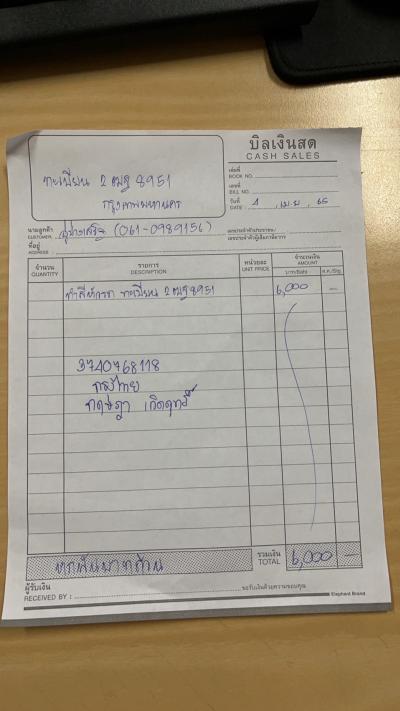 บิลเงินสด
CASH SALES
เล่มที่
BOOK NO.
เลขที่
BILL NO.
ทะเบียน 2 ฒฎ 8951
กรุงเทพมหานคร
วันที่
DATE 1 , เม.ย , 65
นามลูกค้า
CUSTOMER (061-0989156)
เลขประจำตัวประชาชน /
เลขประจำตัวผู้เสียภาษีอากร
ที่อยู่
ADDRESS
จำนวน
QUANTITY
รายการ
DESCRIPTION
หน่วยละ
UNIT PRICE
จำนวนเงิน
AMOUNT
บาท/Baht ส.ต./Stg.
ทะเบียน 2 ฒฎ 8951 6,000 —
3740768118
กสิกไทย
กฤษฎา
หกพันบาทถ้วน
รวมเงิน
TOTAL 6,000 —
ผู้รับเงิน
RECEIVED BY :
ขอรับเงินด้วยความขอบคุณ
Elephant Brand